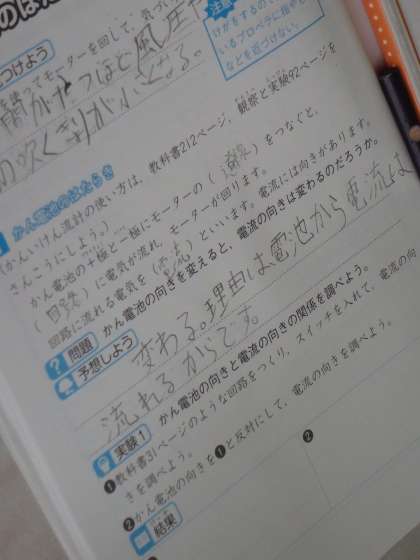 つけよう
ってモーターを回して、気づい
風圧
間がたつほど
の吹く
が
となる。
注意
けがをするので
いるプロペラに指や
などを近づけない。
1 かん電池のはたらき
(かんいけん流計の使い方は、教科書212ページ、観察と実験92ページを
さんこうにしよう。)
かん電池の+極と-極にモーターの( 導線 )をつなぐと、
( 回路 )に電気が流れ、モーターが回ります。
回路に流れる電気を( 電流 )といいます。電流には向きがあります。
? 問題 かん電池の向きを変えると、電流の向きは変わるのだろうか。
予想しよう
変わる。理由は電池から電流は
流れるからです。
実験1 かん電池の向きと電流の向きの関係を調べよう。
❶教科書31ページのような回路をつくり、スイッチを入れて、電流の向
きを調べよう。
❷かん電池の向きを❶と反対にして、電流の向きを調べよう。
結果
❶
❷